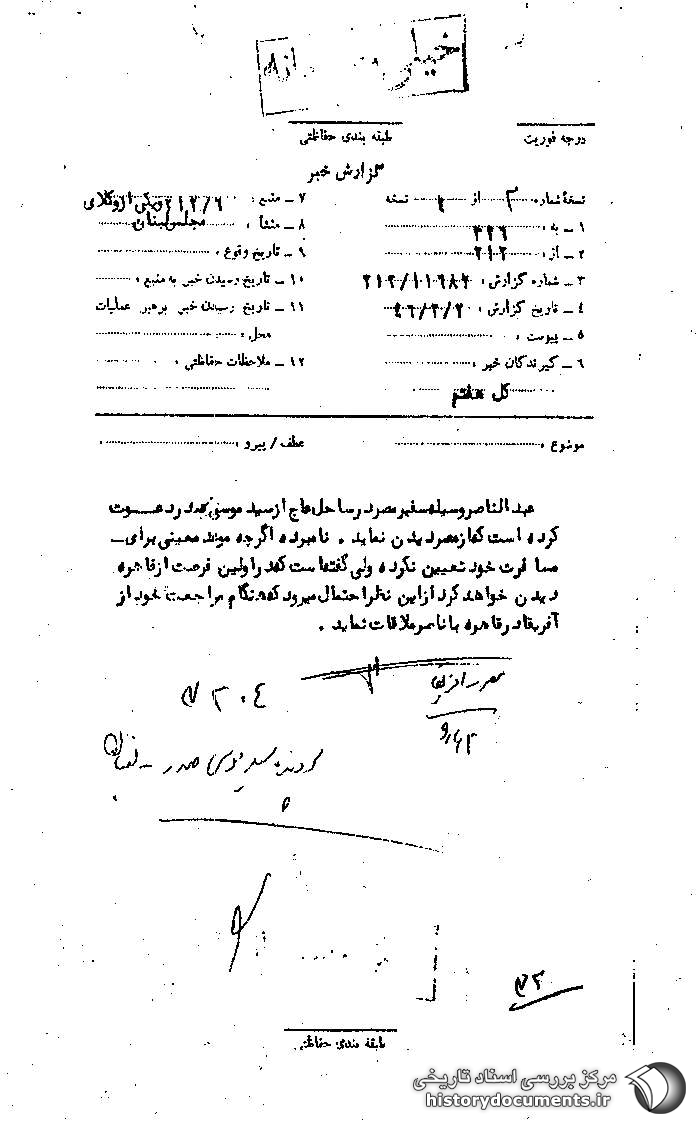 خیلی
درجه فوریت
طبقه بندی حفاظتی
گزارش خبر
نسخه شماره ۳ از ۴ نسخه
۱ ـ به : ۳۲۶
۲ ـ از : ۲۱۲
۳ ـ شماره گزارش : ۲۱۲/۱۱۶۸۲
۴ ـ تاریخ گزارش : ۴۶/۳/۲
۵ ـ پیوست :
۶ ـ گیرندگان خبر :
کل هشتم
۷ ـ منبع : ۲۱۲/۶ ویکی ازوکلای
مجلس لبنان
۸ ـ منشأ :
۹ ـ تاریخ وقوع :
۱۰ ـ تاریخ رسیدن خبر به منبع :
۱۱ ـ تاریخ رسیدن خبر برهبر عملیات
محل :
۱۲ ـ ملاحظات حفاظتی :
موضوع :
عطف / پیرو :
عبدالناصر وسیله سفیر مصر در ساحل عاج از سید موسی صدر دعوت
کرده است که از مصر دیدن نماید . نامبرده اگرچه موعد معینی برای ـ
مسافرت خود تعیین نکرده ولی گفته است که در اولین فرصت از قاهره
دیدن خواهد کرد از این نظر احتمال میرود که هنگام مراجعت خود از
آفریقا در قاهره با ناصر ملاقات نماید .
۲۰۴
سید موسی صدر
طبقه بندی حفاظتی
مرکز بررسی اسناد تاریخی
historydocuments.ir